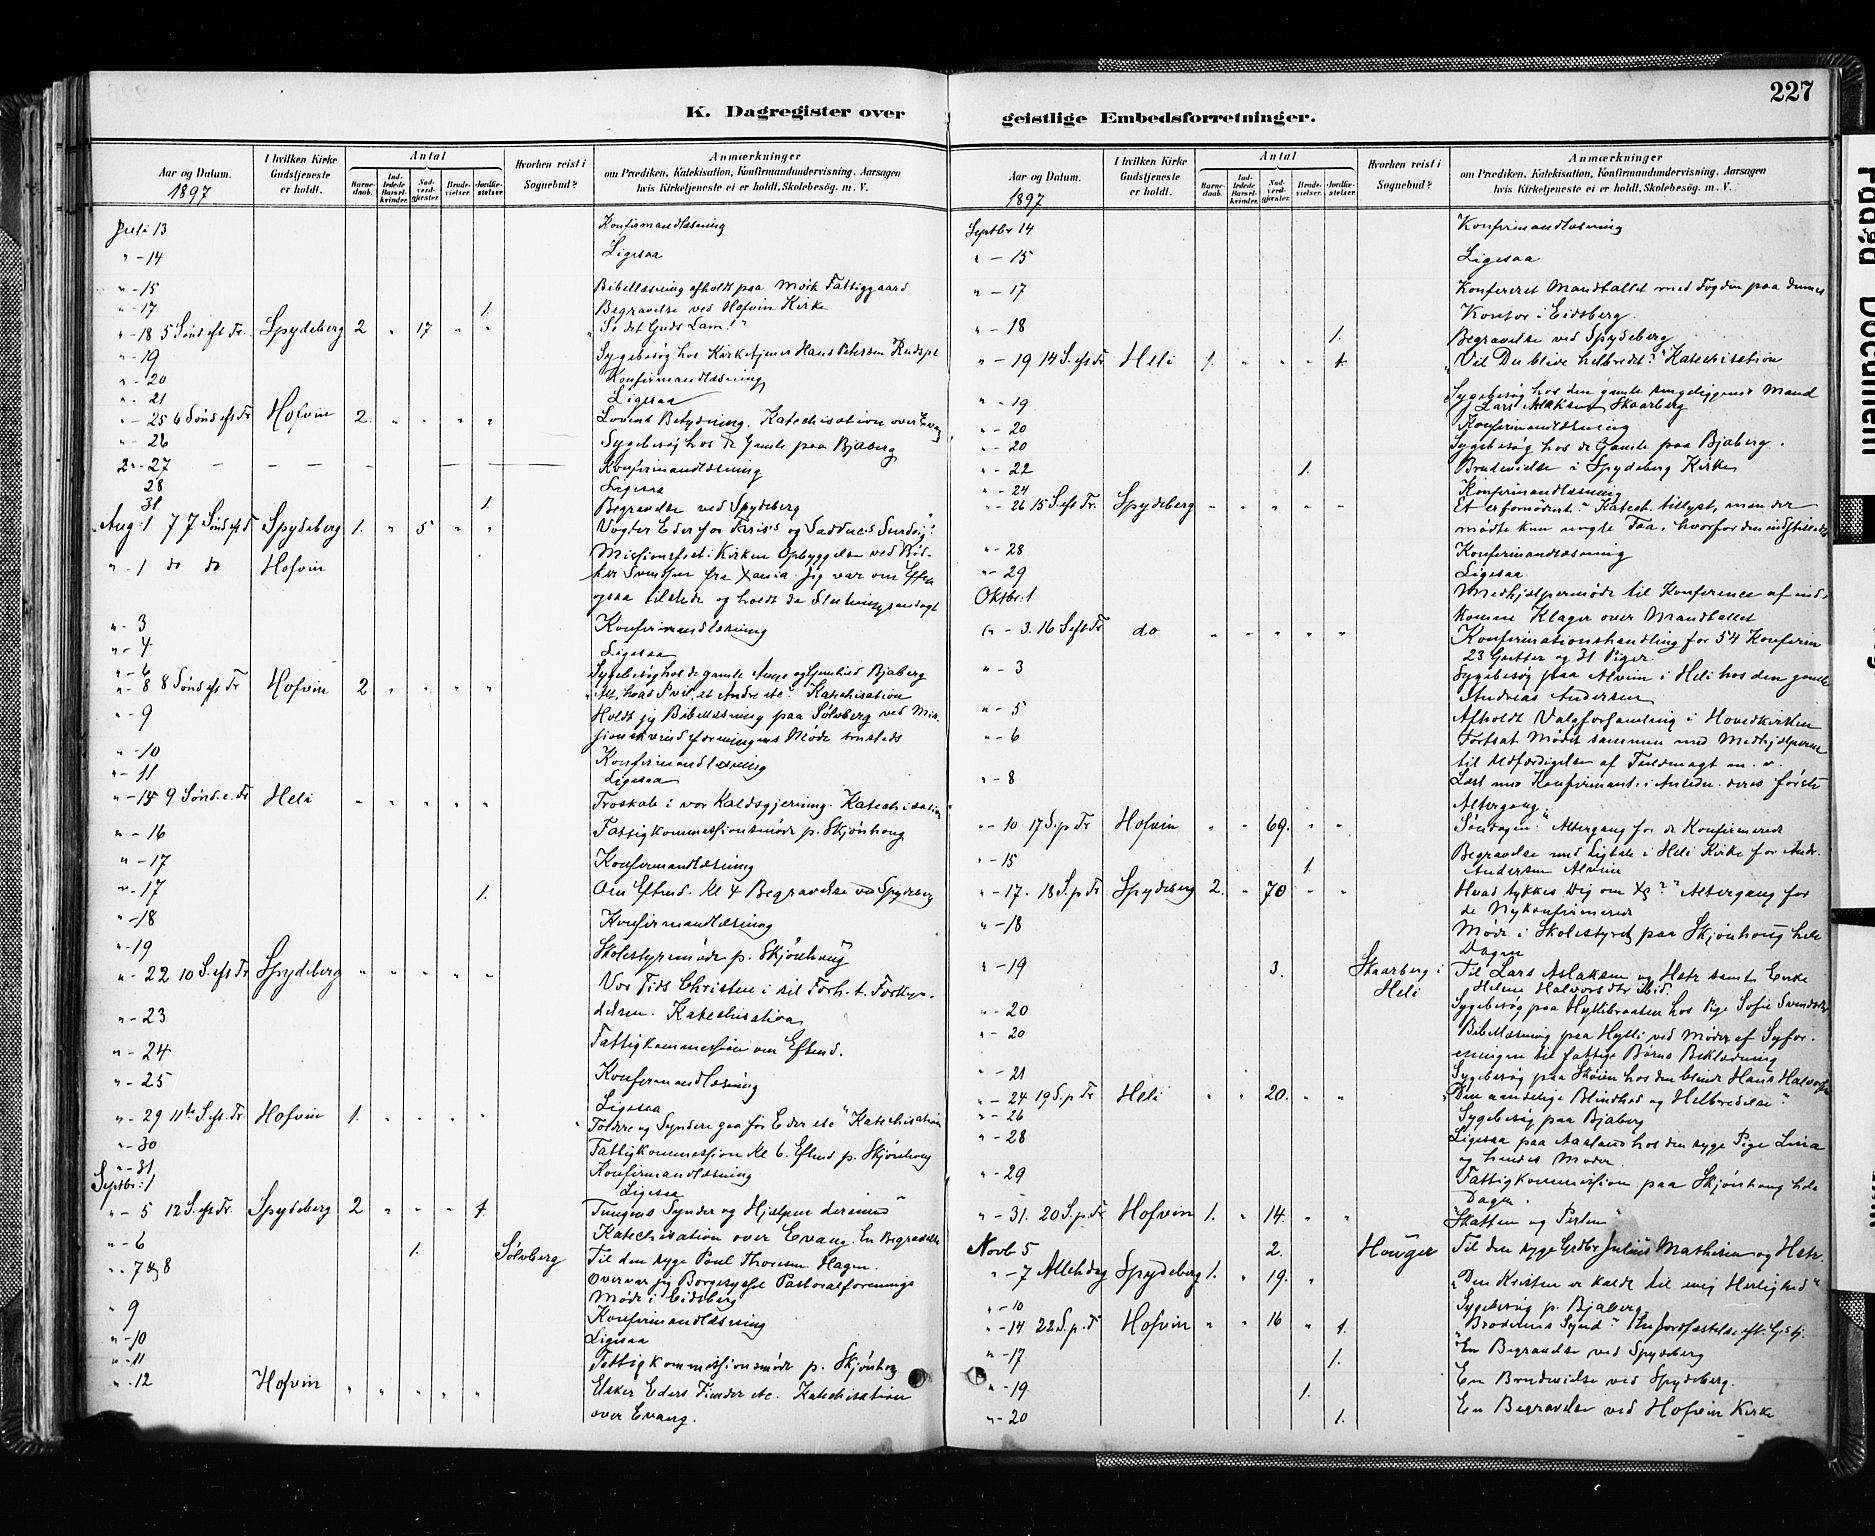 K. Dagregister over
Aar og Datum.
1897
I hvilken Kirke Gudstjeneste er holdt.
Antal
Barnedaab.
Indledede Barselkvinder.
Nadverdgjester.
Brudevielser.
Jordfæstelser.
Hvorhen reist i Sognebud?
Anmærkninger
om Prædiken, Katekisation, Konfirmandundervisning, Aarsagen
hvis Kirketjeneste ei er holdt, Skolebesøg. m. V.
Juli 13 Konfirmandlæsning
" - 14 Ligesaa
" - 15 Bibellæsning afholdt paa Mörk Fattiggaard
" - 17 1. Begravelse ved Hofvin Kirke
" - 18 5 Sönd eft Tr. Spydeberg 2 " 17 " " "Se det Guds Lam!"
" - 19 Sygebesög hos Kirketjener Hans Petersen
" - 20 Konfirmandlæsning
" - 21 Ligesaa
" - 25 6 Sönd eft Tr Hofvin 2. " " " " Lovens Betydning. Katechisation over Evang
" - 26 Sygebesög hos de Gamle paa Bjaberg
" - 27 Konfirmandlæsning
28 Ligesaa
31 1. Begravelse ved Spydeberg
Aug. 1 7 Sönd eft Spydeberg 1. " 5 " " Vogter Eder for
" - 1 do do Hofvin Missionsfest i Kirken Opbyggelse ved
Svendsen fra Xania. Jeg var om Efter
ogsaa tilstede og holdt da Slutningsandagt
" - 3 Konfirmandlæsning
" - 4 Ligesaa
" - 6 Sygebesög hos de gamle Bjaberg
" - 8 8 Sönd eft Tr Hofvin 2 " " " " "Alt, hvad I vil, at Andre etc." Katechisation
" - 9 Holdt jeg Bibellæsning paa Sölvberg ved Mis-
Møde
" - 10 Konfirmandlæsning
" - 11 Ligesaa
" - 15 9 Sönd. e. Tr Heli " " " " " Troskab i vor Kaldsgjerning. Katechisation
" - 16 Fattigkommissionsmöde p. Skjönhaug
" - 17 Konfirmandlæsning
" - 17 1. Om Eftmd. Kl 4 Begravelse ved Spydeberg
" - 18 Konfirmandlæsning
" - 19 Skolestyremöde p. Skjönhaug
" - 22 10 S. eft Tr Spydeberg " " " " " Vor Tids Christne i til Forh. t. Forkyn-
delsen. Katechisation
" - 23 Fattigkommission om Eftmd.
" - 24 Konfirmandlæsning
" - 25 Ligesaa
" - 29 11te S. eft. Tr. Hofvin 1. " " " " "Toldere og Syndere gaa for Eder etc" Katechisation
" - 30 Fattigkommission Kl 6. Eftmd p. Skjönhaug
" - 31 Konfirmandlæsning
Septbr: 1 Ligesaa
" - 5 12 S. eft Tr. Spydeberg 2 " " " 1. Tungens Synder og Hjælpen derimod
Katechisation over Evang. En Begravelse
" - 6 1. Sölvberg Til den syge Poul Thoresen Hagen.
" - 7 og 8 Overvar jeg Borgesyssel Pastoralforenings
Möde i Eidsberg
" 9 Konfirmandlæsning
" - 10 Ligesaa
" - 11 Fattigkommissionsmöde p. Skjönhaug
" - 12 Hofvin " " " " " Elsker Eders Fiender etc. Katechisation
over Evang.
geistlige Embedsforretninger.
227
Aar og Datum.
1897
I hvilken Kirke Gudstjeneste er holdt.
Antal
Barnedaab.
Indledede Barselkvinder.
Nadverdgjester.
Brudevielser.
Jordfæstelser.
Hvorhen reist i Sognebud?
Anmærkninger
om Prædiken, Katekisation, Konfirmandundervisning, Aarsagen
hvis Kirketjeneste ei er holdt, Skolebesøg. m. V.
Septbr 14 Konfirmandlæsning
" - 15 Ligesaa
" - 17 Konfereret Mandtallet med Fogden paa dennes
Kontor i Eidsberg
" - 18 1. Begravelse ved Spydeberg
" - 19 14 S. eft Tr Heli 1. " " " 1. "Vil Du blive helbredet?" Katechisation
" - 19 Sygebesög hos den gamle sengeliggende Mand
Lars Aslaksen Skaarberg
" - 20 Konfirmandlæsning
" - 20 Sygebesög hos de Gamle paa Bjaberg.
" - 22 1. Brudevielse i Spydeberg Kirke
" - 24 Konfirmandlæsning
" - 26 15 S. eft Tr. Spydeberg " " " " " Et er fornödent." Katech. tillyst, men der
mødte kun nogle Faa, hvorfor den indstilledes
" - 28 Konfirmandlæsning
" - 29 Ligesaa.
Oktbr. 1 Medhjælpermöde til Konference af ind-
komne Klager over Mandtallet
" - 3. 16 S eft Tr do " " " " " Konfirmationshandling for 54 Konfirm
23 Gutter og 31 Piger.
" - 3 Sygebesög paa Alvim i Heli hos den gamle
Andreas Andersen
" - 5 Afholdt Valgforsamling i Hovedkirken
" - 6 Fortsat Mödet sammen med Medhjælperne
til Udfærdigelse af Fuldmagt m. v.
" - 8 Læst med Konfirmant. i Anledn. deres første
Altergang.
" - 10 17 S. p Tr Hofvin " " 69. " " "Söndagen." Altergang for de Konfirmerede
" - 15 1. Begravelse med Ligtale i Heli Kirke for Andr.
Andersen Alvim
" - 17. 18 S. p Tr Spydeberg 2. " 70 " " Hvad tykkes Dig om Xs?" Altergang for
de Nykonfirmerede
" - 18 Möde i Skolestyret paa Skjönhaug hele
Dagen
" - 19 3. Skaarberg i Heli Til Lars Aslaksen og Hstr samt Enke
Helene Halvorsdtr ibid.
" - 20 Sygebesög paa Hyllibraaten hos Pige Sofie Svendsdtr
" - 20 Bibellæsning paa Hylli ved Möder af Syfor-
eningen til fattige Börns Beklædning
" - 21 Sygebesög paa Skøien hos den blinde Hans Halvorsen
" - 24 19 S. p Tr Heli " " 20. " " "Den aandelige Blindhed og Helbredelse"
" - 26 Sygebesög paa Bjaberg
" - 28 Ligesaa paa Aaland hos den syge Pige Lina
og hendes Moder.
" - 29 Fattigkommission paa Skjönhaug hele
Dagen.
" - 31. 20 S. p. Tr Hofvin 1. " 14. " " "Skatten og Perlen"
Novb 5 2. Houger Til den syge Grdbr Julius Mathisen og Hstr.
" - 7 Allehdag Spydeberg 1. " 19. " "Den Kristne er kaldt til evig Herlighed"
" - 10 Sygebesög p. Bjaberg
" - 14 22 S. p. T Hofvin " " 16 " 1. "Broderens Synd." 1 Jordfæstelse eft. Gstj.
" - 17 1. En Begravelse ved Spydeberg
" - 19 1. En Brudevielse ved Spydeberg.
" - 20 1. En Begravelse ved Hofvin Kirke